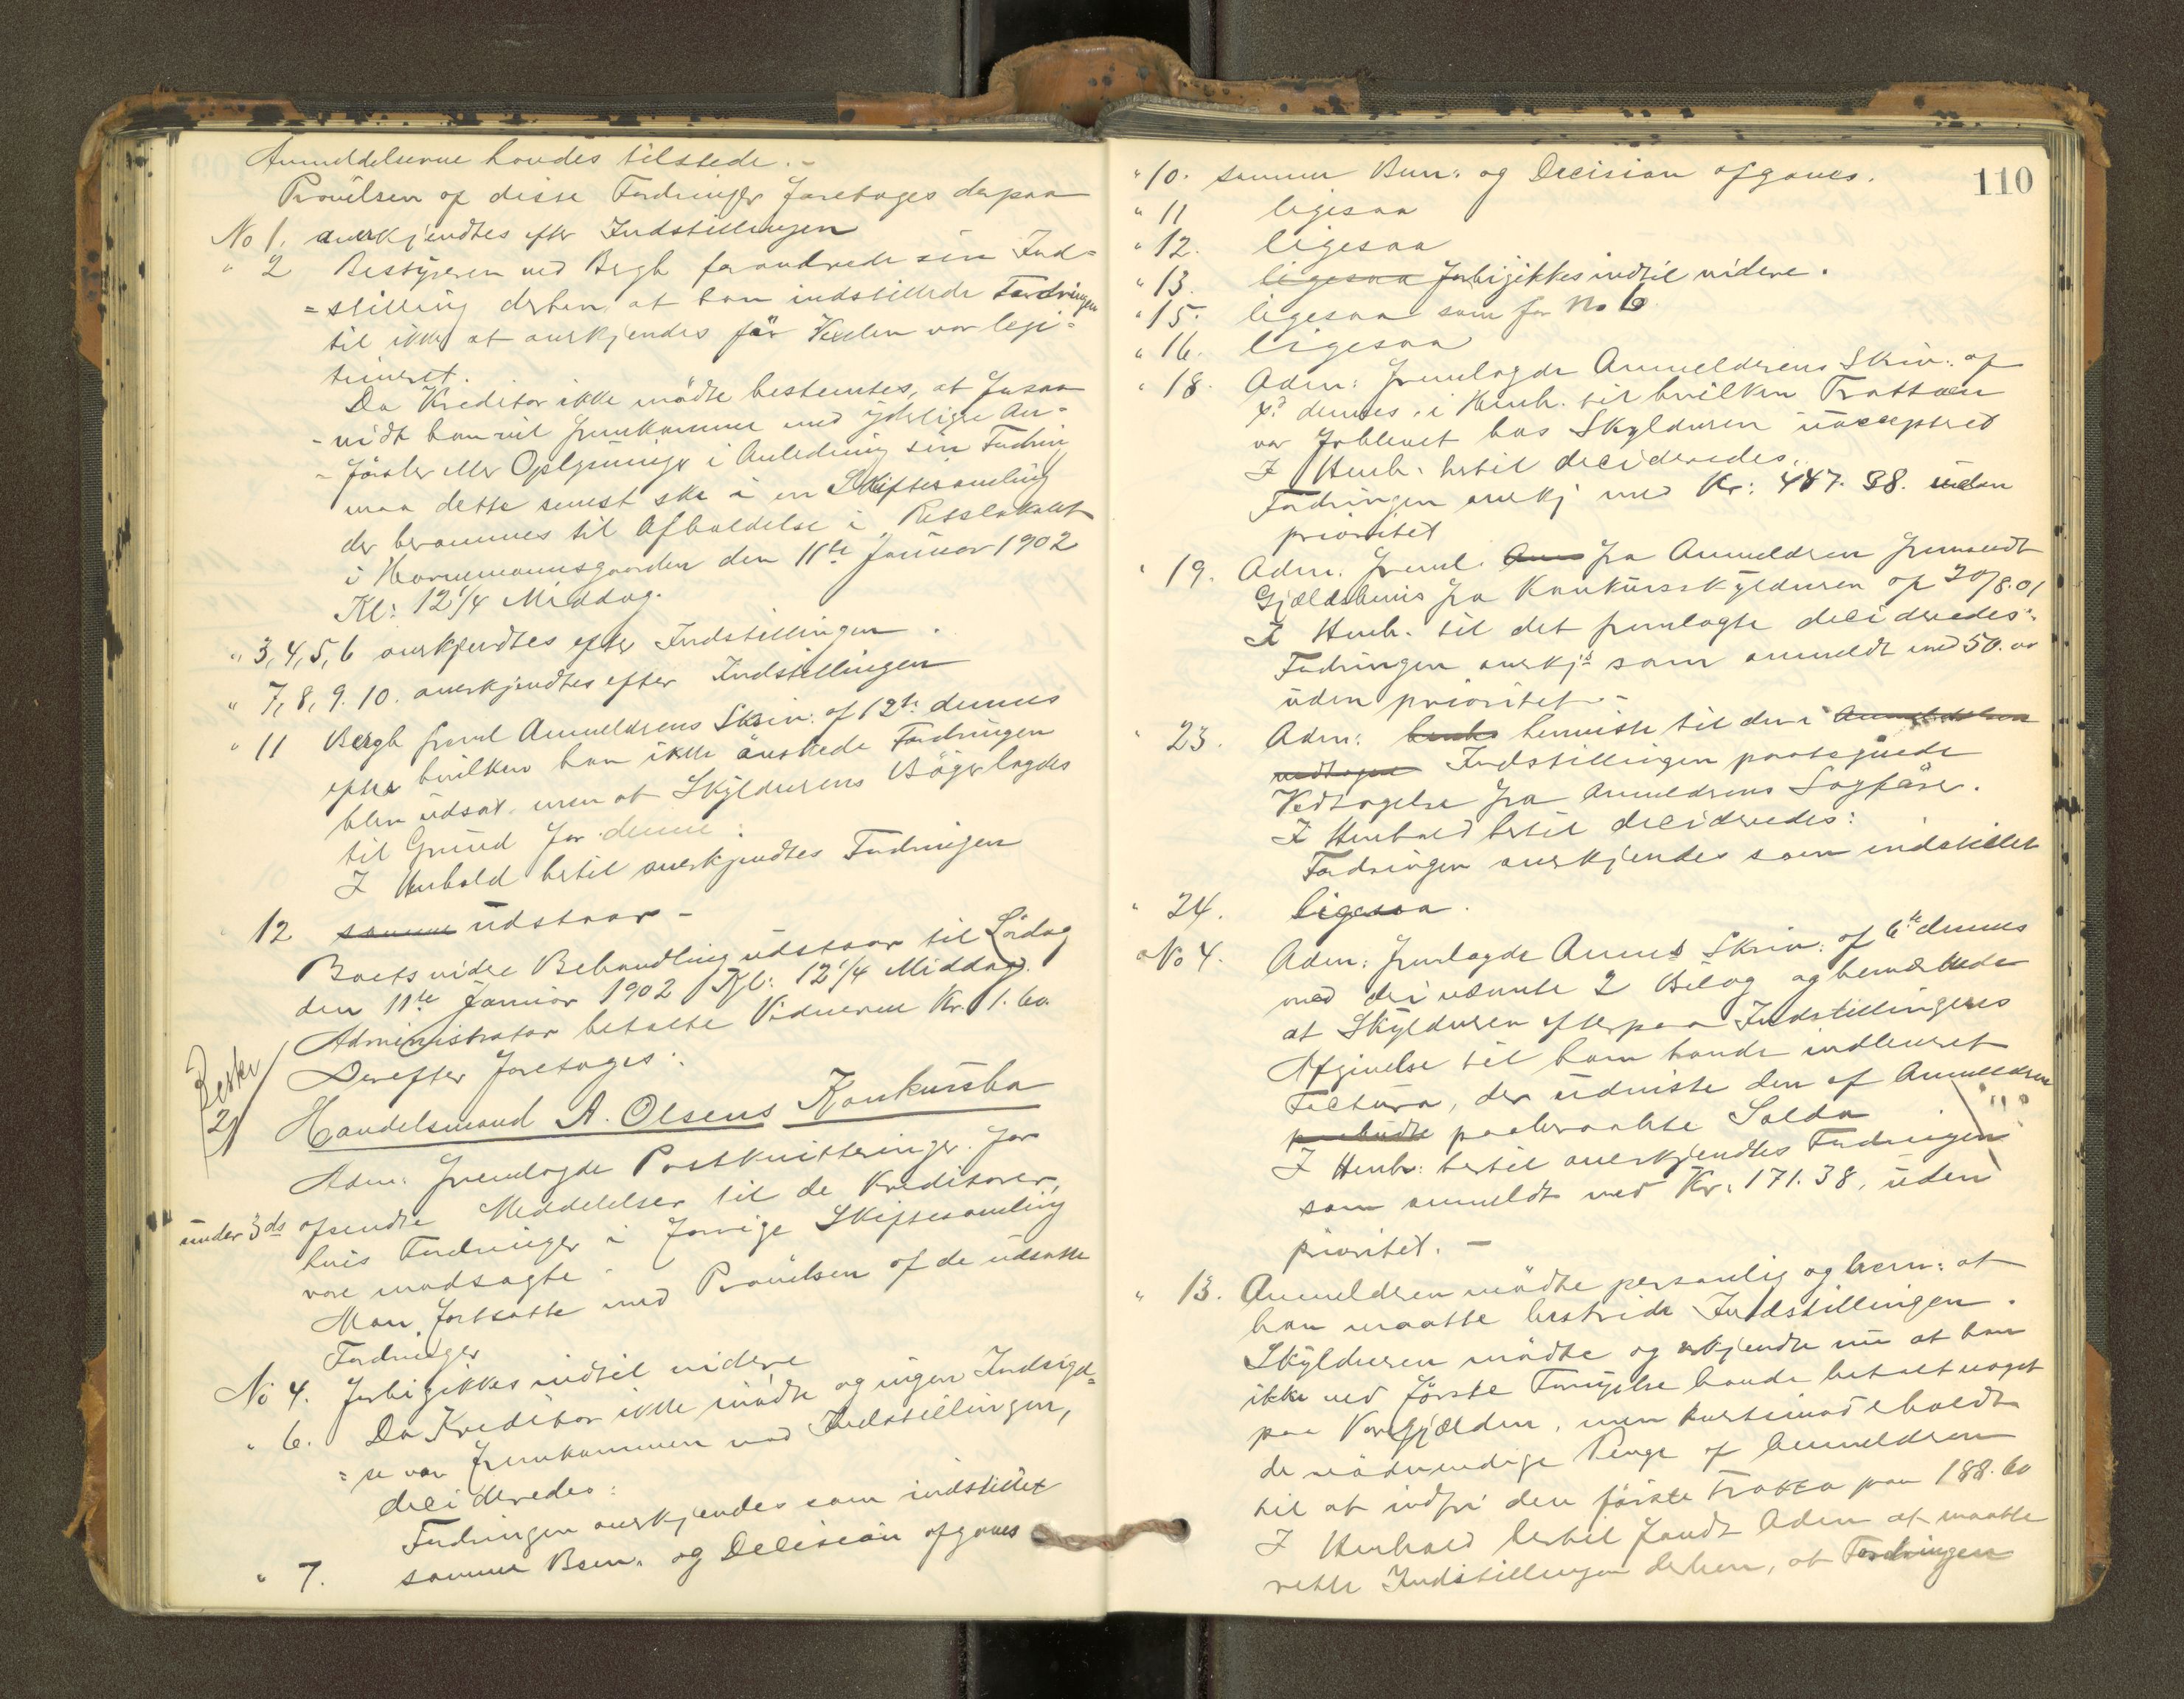 Anmeldelserne havdes tilstede. -
Prøvelsen af disse Fordringer foretages derpaa
No 1. anerkjendtes efter Indstillingen
" 2 Bestyreren ved Bergh forandrede sin Ind=
=stilling derhen, at han indstillede Fordringen
til ikke at anerkjendes før Vexlen var legi=
timeret.
Da Kreditor ikke mødte bestemtes, at forsaa
-vidt han vil fremkomme med yderligere An=
-førsler eller Oplysninger i Anledning sin Fordring
maa dette senest ske i en Skiftesamling
der berammes til Afholdelse i Retslokalet
i Hornemannsgaarden den 11te Januar 1902
Kl: 12 1/4 Middag.
" 3, 4, 5, 6 anerkjendtes efter Indstillingen.
" 7, 8, 9. 10. anerkjendtes efter Indstillingen
" 11 Bergh freml Anmelderens Skriv: af 12te dennes
efter hvilken han ikke ønskede Fordringen
blev udsat men at Skyldnerens Bøger lagdes
til Grund for denne:
I Henhold hertil anerkjendtes Fordringen
" 12 samme udstaar -
Boets videre Behandling udstaar til Lørdag
den 11te Januar 1902 Kl: 12 1/4 Middag.
Administrator betalte Vidnerne Kr. 1.60.
Derefter foretoges:
Beskr
21
Handelsmand A. Olsens Konkursbo
Adm. fremlagde Postkvitteringer for
under 3ds afsendte Meddelelser til de Kreditorer,
hvis Fordringer i forrige Skiftesamling
vare modsagte.
Man fortsatte med Prøvelsen af de udsatte
Fordringer
No 4. forbigikkes indtil videre
" 6. Da Kreditor ikke mødte og ingen Indsigel=
=se var fremkommen mod Indstillingen,
decideredes:
Fordringen anerkjendes som indstillet
" 7. samme Bem. og Decision afgaves
110
" 10. samme Bem: og Decision afgaves.
" 11 ligesaa
" 12. ligesaa
" 13. ligesaa forbigikkes indtil videre.
" 15. ligesaa som for No 6
" 16. ligesaa
" 18. Adm: fremlagde Anmelderens Skriv: af
dennes, i Henh. til hvilken Tratten
var forblevet hos Skyldneren uaccepteret
I Henh. hertil decideredes.
Fordringen anerkj med Kr: 447.38. uden
prioritet
" 19. Adm. freml. Anm fra Anmelderen fremsendt
Gjældsbevis fra Konkursskyldneren af 20/8.01
I Henh. til det fremlagte decideredes:
Fordringen anerkjs som anmeldt med 50.00
uden prioritet -
" 23. Adm: henviste til den i Anmeldelsen
vedtagne Indstillingen paategnede
Vedtagelse fra Anmelderens Sagfører.
I Henhold hertil decideredes:
Fordringen anerkjendes som indstillet
" 24. ligesaa.
No 4. Adm: fremlagde Anms Skriv. af 6te dennes
med deri nævnte 2 Bilag og bemærkede
at Skyldneren efterpaa Indstillingens
Afgivelse til ham havde indleveret
Factura, der udviste den af Anmelderen
paabudte paaberaabte Saldo
I Henh: hertil anerkjendtes Fordringen
som anmeldt med Kr. 171.38, uden
prioritet. -
" 13. Anmelderen mødte personlig og bem: at
han maatte bestride Indstillingen.
Skyldneren mødte og erkjendte nu at han
ikke ved første Fornyelse havde betalt noget
paa Varegjælden, men hertimod eholdt
de nødvendige Penge af Anmelderen
til at indfri den første Tratta paa 188.60
I Henhold hertil fandt Adm at maatte
rette Indstillingen derhen, at Fordringen